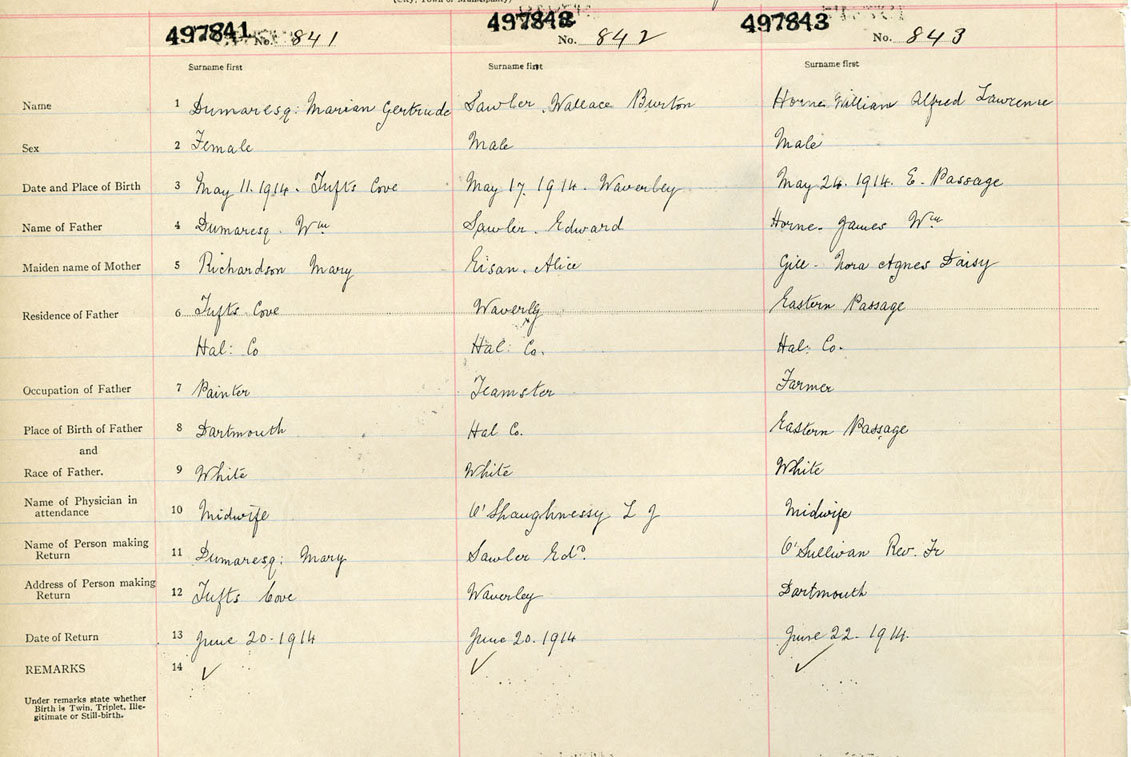 (City, Town or Municipality)
497841 No. 841 497842 No. 842 497843 No. 843
Surname first Surname first Surname first
Name 1 Dumaresq: Marian Gertrude Sawler, Wallace Burton Horne, William Alfred Lawrence
Sex 2 Female Male Male
Date and Place of Birth 3 May 11. 1914. Tufts Cove May 17. 1914. Waverley May 24. 1914. E. Passage
Name of Father 4 Dumaresq. Wm Sawler. Edward Horne. James Wm
Maiden name of Mother 5 Richardson Mary Eisan, Alice Gill. Nora Agnes Daisy
Residence of Father 6 Tufts Cove Waverly Eastern Passage
Hal: Co Hal: Co. Hal: Co.
Occupation of Father 7 Painter Teamster Farmer
Place of Birth of Father 8 Dartmouth Hal Co. Eastern Passage
and
Race of Father. 9 White White White
Name of Physician in attendance 10 Midwife O'Shaughnessy L J Midwife
Name of Person making Return 11 Dumaresq: Mary Sawler Edd. O'Sullivan Rev. Fr
Address of Person making Return 12 Tufts Cove Waverley Dartmouth
Date of Return 13 June 20. 1914 June 20. 1914 June 22. 1914.
REMARKS 14 ✓ ✓ ✓
Under remarks state whether
Birth is Twin, Triplet, Ille-
gitimate or Still-birth.